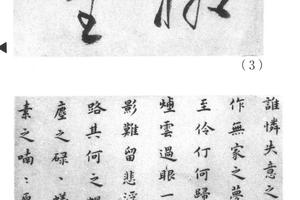 (3)
誰憐失意之
作無家之夢
至伶仃何歸
煙雲過眼一
影難留悲浮
路其何之
塵之碌、
素之喃、